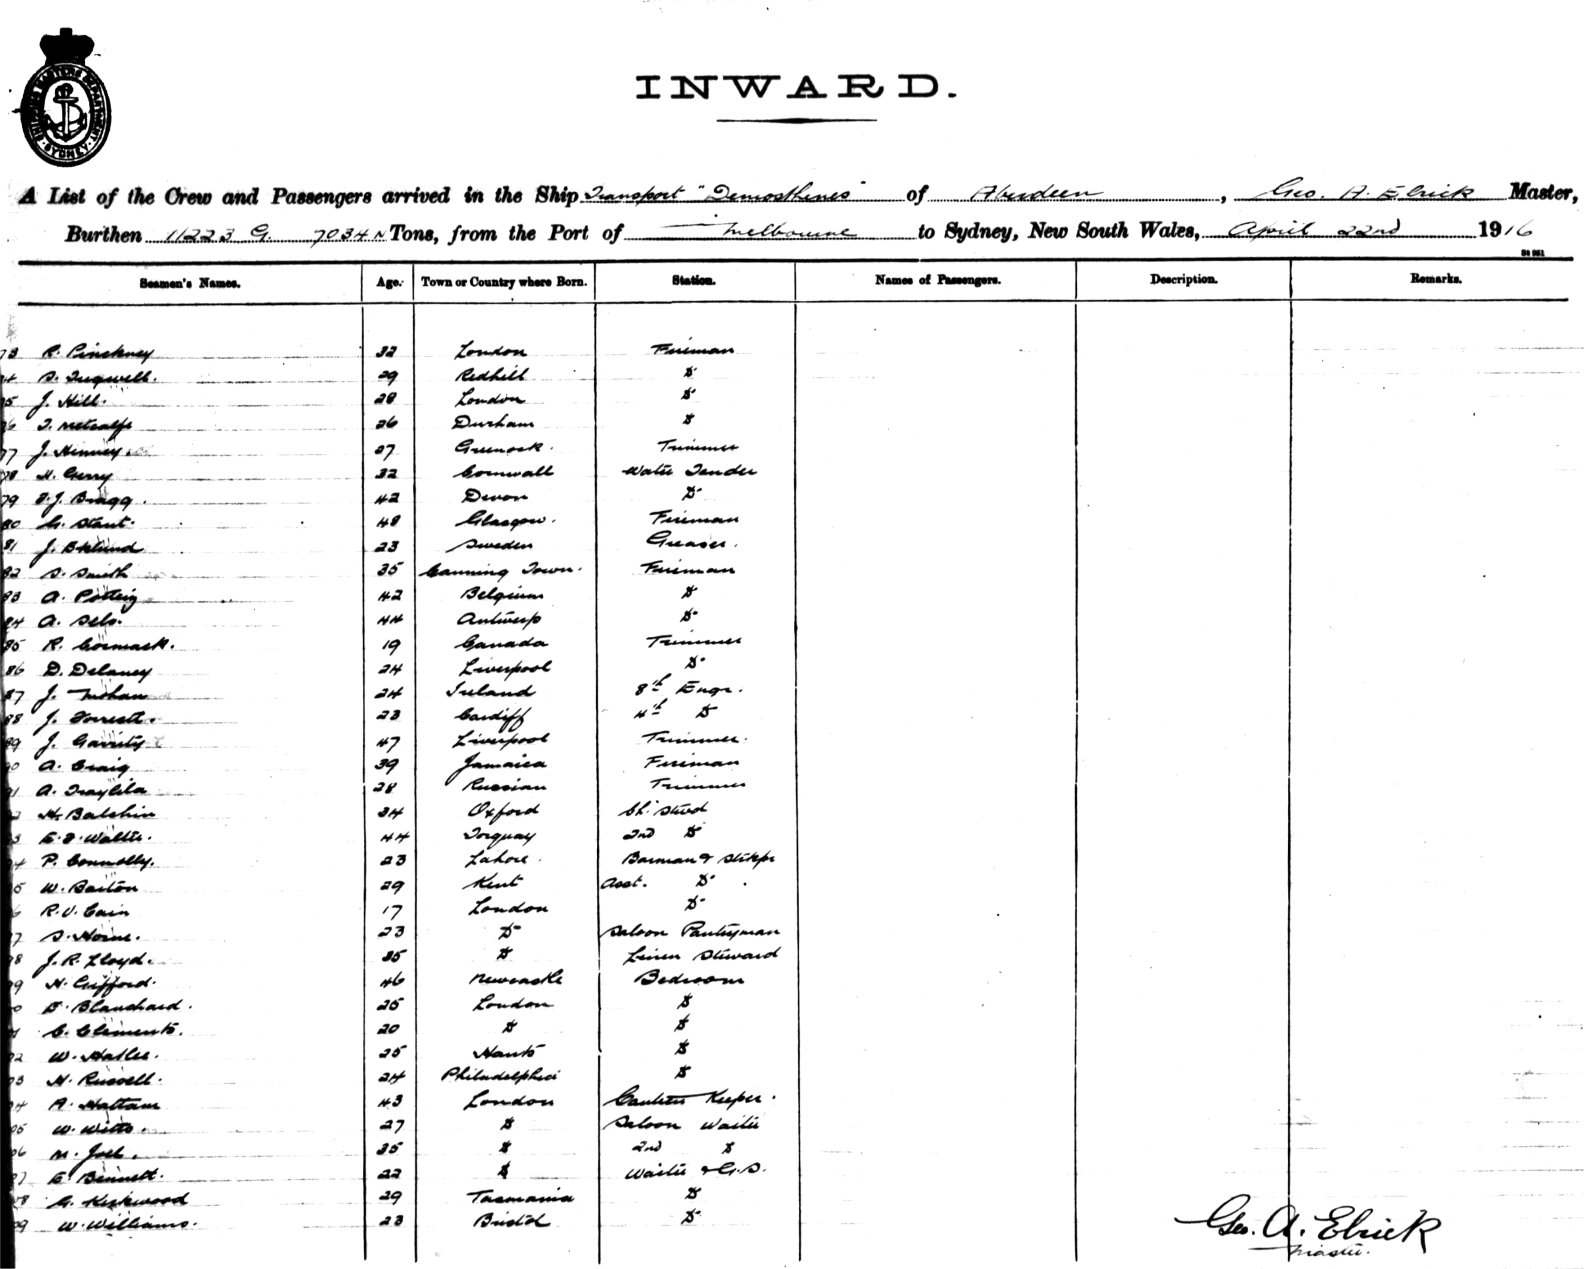 SHIPPING MASTERS DEPARTMENT SYDNEY
INWARD.
A List of the Crew and Passengers arrived in the Ship Transport "Demosthenes" of Aberdeen, Geo. A. Elrick Master,
Burthen 11223 G. 7034 N Tons, from the Port of Melbourne to Sydney, New South Wales, April 22nd 1916
Seamen's Names. Age. Town or Country where Born. Station. Names of Passengers. Description. Remarks.
73 R. Pinckney 32 London Fireman
74 S. Tugwell. 29 Redhill Do
75 J. Hill. 28 London Do
76 T. Metcalfe 26 Durham Do
77 J. Kinney. 27 Greenock. Trimmer
78 H. Gerry 32 Cornwall Water Tender
79 F. J. Bragg. 42 Devon Do
80 G. Stant. 48 Glasgow. Fireman
81 J. Eklund 23 Sweden Greaser.
82 S. Smith 35 Canning Town. Fireman
83 A. 42 Belgium Do
84 A. Sels. 44 Antwerp Do
85 R. Cormack. 19 Canada Trimmer
86 D. Delaney 24 Liverpool Do
87 J. Mohan 24 Ireland 8th Engr.
88 J. Forrest. 23 Cardiff 4th Do
89 J. Garrity 47 Liverpool Trimmer.
90 A. Craig 39 Jamaica Fireman
91 A. 28 Russian Trimmer
2 H. Balchin 34 Oxford Ch. Stwd
3 E. F. Walter. 44 Torquay 2nd Do
4 P. Connolly. 23 Lahore. Barman & Stkpr
5 W. Barton 29 Kent Asst. Do
6 R. V. Cain 17 London Do
7 S. Horne. 23 Do Saloon Pantryman
8 J. R. Lloyd. 35 Do Linen Steward
99 H. Gifford. 46 Newcastle Bedroom
0 E. Blanchard. 25 London Do
1 C. Clements. 20 Do Do
02 W. Hatler. 25 Hants Do
03 H. Russell. 24 Philadelphia Do
04 A. Hattam 43 London Canteen Keeper.
05 W. Witts. 27 Do Saloon Waiter
06 M. Joel. 35 Do 2nd Do
07 E. Bennett. 22 Do Waiter & G.S.
08 G. Kirkwood 29 Tasmania Do
09 W. Williams. 23 Bristol Do
Geo. A. Elrick
Master.